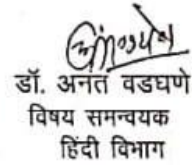 डॉ. अनंत वडघणे
विषय समन्वयक
हिंदी विभाग